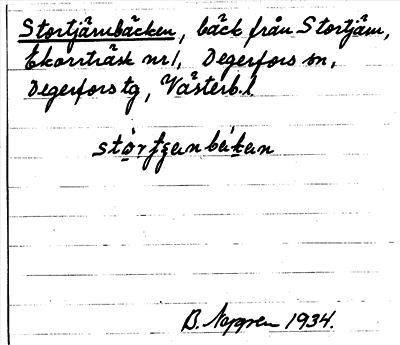 Stortjärnbäcken, bäck från Stortjärn,
Ekorrträsk nr 1, Degerfors sn,
Degerfors tg, Västerb.l.
B. 1934.